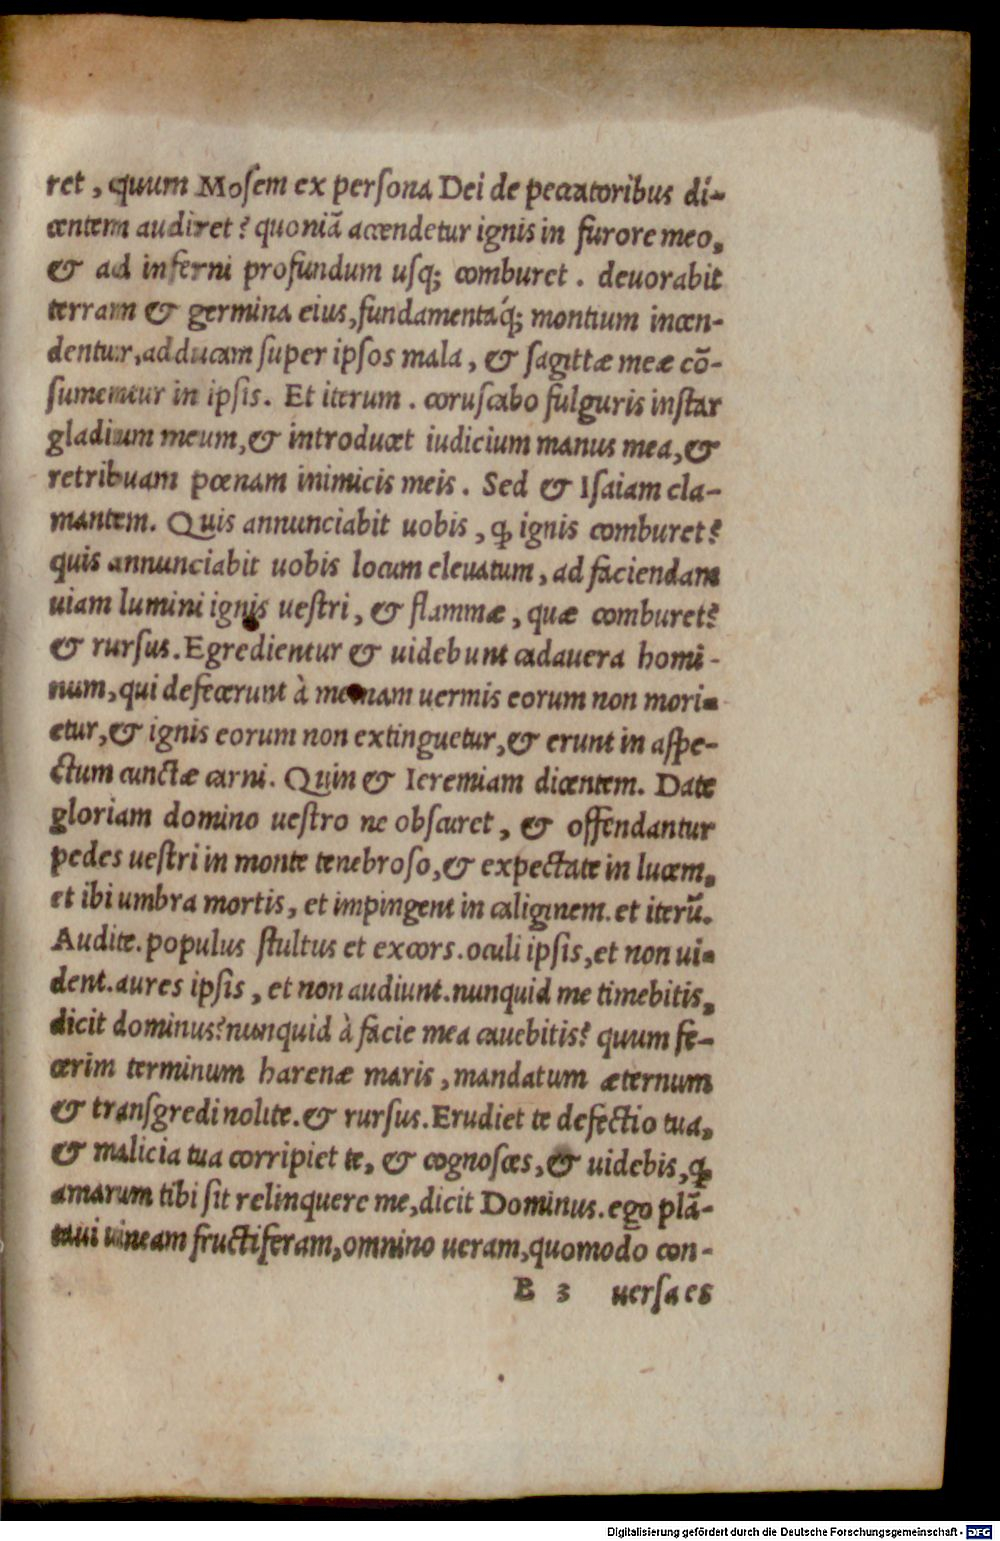 ret, quum Mosem ex persona Dei de peccatoribus di-
centem audiret? quoniã accendetur ignis in furore meo,
& ad inferni profundum usq; comburet. deuorabit
terram & germina eius, fundamentáq; montium incen-
dentur, adducam super ipsos mala, & sagittæ meæ cõ-
sumentur in ipsis. Et iterum. coruscabo fulguris instar
gladium meum, & introducet iudicium manus mea, &
retribuam pœnam inimicis meis. Sed & Isaiam cla-
mantem. Quis annunciabit uobis, ꝙ ignis comburet?
quis annunciabit uobis locum eleuatum, ad faciendam
uiam lumini ignis uestri, & flammæ, quæ comburet?
& rursus. Egredientur & uidebunt cadauera homi-
num, qui defecerunt à me nam uermis eorum non mori-
etur, & ignis eorum non extinguetur, & erunt in aspe-
ctum cunctæ carni. Quin & Ieremiam dicentem. Date
gloriam domino uestro ne obscuret, & offendantur
pedes uestri in monte tenebroso, & expectate in lucem,
et ibi umbra mortis, et impingent in caliginem. et iterũ.
Audite. populus stultus et excors. oculi ipsis, et non ui-
dent. aures ipsis, et non audiunt. nunquid me timebitis,
dicit dominus? nunquid à facie mea cauebitis? quum fe-
cerim terminum harenæ maris, mandatum æternum
& transgredi nolite. & rursus. Erudiet te defectio tua,
& malicia tua corripiet te, & cognosces, & uidebis, ꝙ
amarum tibi sit relinquere me, dicit Dominus. ego plã-
taui uineam fructiferam, omnino ueram, quomodo con-
B 3 uersa es
Digitalisierung gefördert durch die Deutsche Forschungsgemeinschaft - DFG